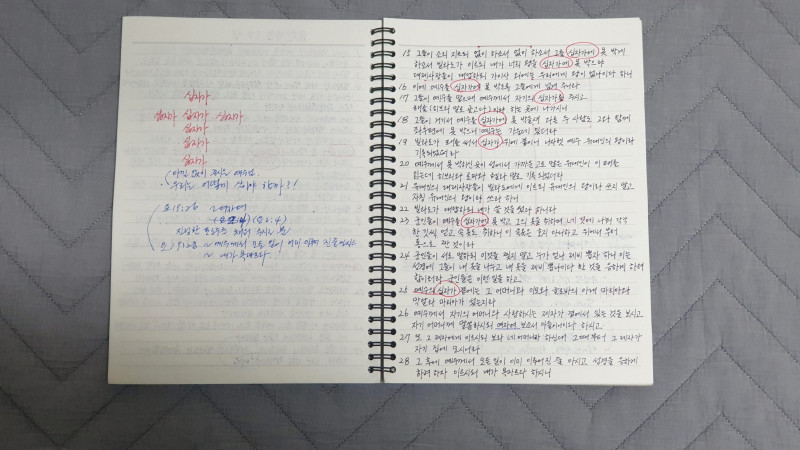 십자가
십자가 십자가 십자가
십자가
십자가
십자가
아낌 없이 주신 예수님
우리는 어떻게 살아야 할까?!
요 19:26 ~ 여자여
(요 2:4)
요 19:28 ~ 예수께서 모든 일이 이미 이루어 진줄 아시고
~ 내가 목마르다!
15 그들이 소리 지르되 없이 하소서 없이 하소서 그를 십자가에 못 박게
하소서 빌라도가 이르되 내가 너희 왕을 십자가에 못 박으랴
대제사장들이 대답하되 가이사 외에는 우리에게 왕이 없나이다 하니
16 이에 예수를 십자가에 못 박도록 그들에게 넘겨 주니라
17 그들이 예수를 맡으매 예수께서 자기의 십자가를 지시고
해골(히브리 말로 골고다)이라 하는 곳에 나가시니
18 그들이 거기서 예수를 십자가에 못 박을새 다른 두 사람도 그와 함께
좌우편에 못 박으니 예수는 가운데 있더라
19 빌라도가 패를 써서 십자가 위에 붙이니 나사렛 예수 유대인의 왕이라
기록되었더라
20 예수께서 못 박히신 곳이 성에서 가까운 고로 많은 유대인이 이 패를
읽는데 히브리와 로마와 헬라 말로 기록되었더라
21 유대인의 대제사장들이 빌라도에게 이르되 유대인의 왕이라 쓰지 말고
자칭 유대인의 왕이라 쓰라 하니
22 빌라도가 대답하되 내가 쓸 것을 썼다 하니라
23 군인들이 예수를 십자가에 못 박고 그의 옷을 취하여 네 깃에 나눠 각각
한 깃씩 얻고 속옷도 취하니 이 속옷은 호지 아니하고 위에서부터
통으로 짠 것이라
24 군인들이 서로 말하되 이것을 찢지 말고 누가 얻나 제비 뽑자 하니 이는
성경에 그들이 내 옷을 나누고 내 옷을 제비 뽑나이다 한 것을 응하게 하려
함이러라 군인들은 이런 일을 하고
25 예수의 십자가 곁에는 그 어머니와 이모와 글로바의 아내 마리아와
막달라 마리아가 섰는지라
26 예수께서 자기의 어머니와 사랑하시는 제자가 곁에 서 있는 것을 보시고
자기 어머니께 말씀하시되 여자여 보소서 아들이니이다 하시고
27 또 그 제자에게 이르시되 보라 네 어머니라 하신대 그 때부터 그 제자가
자기 집에 모시니라
28 그 후에 예수께서 모든 일이 이미 이루어진 줄 아시고 성경을 응하게
하려 하사 이르시되 내가 목마르다 하시니